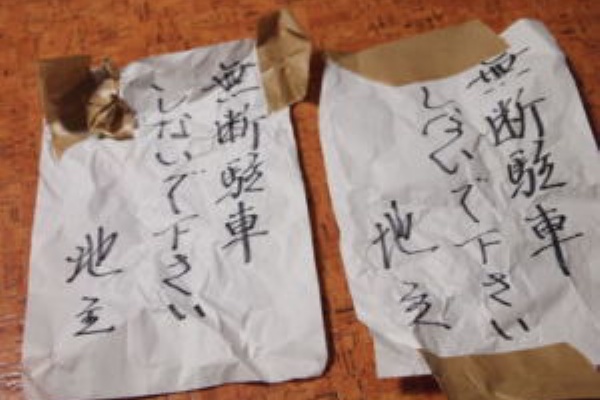 無断駐車
しないで下さい
地主
無断駐車
しないで下さい
地主